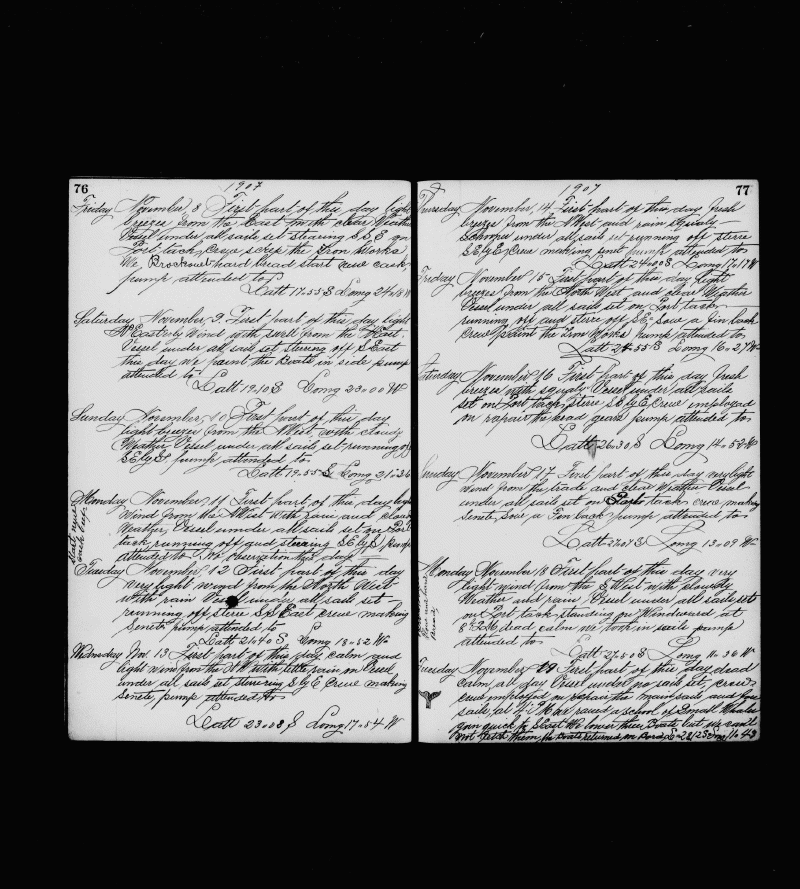 76
1907
Friday November 8 First part of this day light
breezes from the East in the clear Weather
Vessel under all sails set stearing S.S.E on
Port tack, Crew scrape the Iron Works
Mr. hard bread start nuse cask
pump attended to
Latt 17.55 S Long 24.18 W
Saturday November, 9. First part of this day light
Easterly Wind with swell from the East
Vessel under all sail set stering off S East
this day we paint the Boats in side pump
attended to
Latt 19.10 S Long 23.00 W
Sunday November, 10 First part of this day
light breezes from the N West with cloudy
Weather Vessel under all sail set running off
S E by S pump attended to
Latt 19.55 S Long 21.36
Monday November 11 First part of this day light
Wind from the N West with rain and cloudy
Weather, Vessel under all sail set on Port
tack, running off and stearing S E by S, pump
attended to No Observation this day
Start nuse
cask
Tuesday November 12 First part of this day
very light wind from the North West
with rain Vessel under all sail set
running off stere S S East crew making
Senete, pump attended to
Latt 21.40 S Long 18.52 W
Wednesday Nov 13 First part of this day calm and
light wind from the N W with little rain, in Vessel
under all sail set steering S by E Crew making
Senete, pump attended to
Latt 23.03 S Long 17.54 W
77
1907
Thursday November, 14 First part of this, day fresh
breezes from the N West and rain squals
Schooner under all sail set running off stere
S E by E Crew making senet pump attended to
Latt 24.40 S Long 17.17 W
Friday November 15 First part of this day light
breezes from the North West and clear Weather
Vessel under all sail set on Port tack
running off and stere off S E. Saw a fin back
Crew paint the Iron Works pump, attended to
Latt 24.55 S Long 16.27 W
Saturday November 16 First part of this day, fresh
breezes with squals Vessel under all sails
set on Port tack, Stere S E by E Crew imployed
on rapair the boat gears pump attended to
Latt 26.30 S Long 14.52 W
Sunday November 17 First part of this day very light
wind from the S East and clear Weather Vessel
under all sails set on Port tack crew making
Senete, Saw a Fin back pump attended to
Latt 27.01 S Long 13.09 W
Monday November 18 First part of this day very
light wind from the S West with Cloudy
Weather and rain. Vessel under all sails set
on Port tack standing on Windward at
8 P.M. dead calm we took in sails pump
attended to
Latt 27.50 S Long 11.36 W
Tuesday November 19 First part of this day dead
calm, all day Vessel under no sail set, crew
imployed on rapair the main sail and fore
sail, at 4 P.M. we raised a school of Small Whales
goin quick to S East We lower three Boats but we could
not fetch them, the Boats returned on Bord L-28/23 Long 11.43